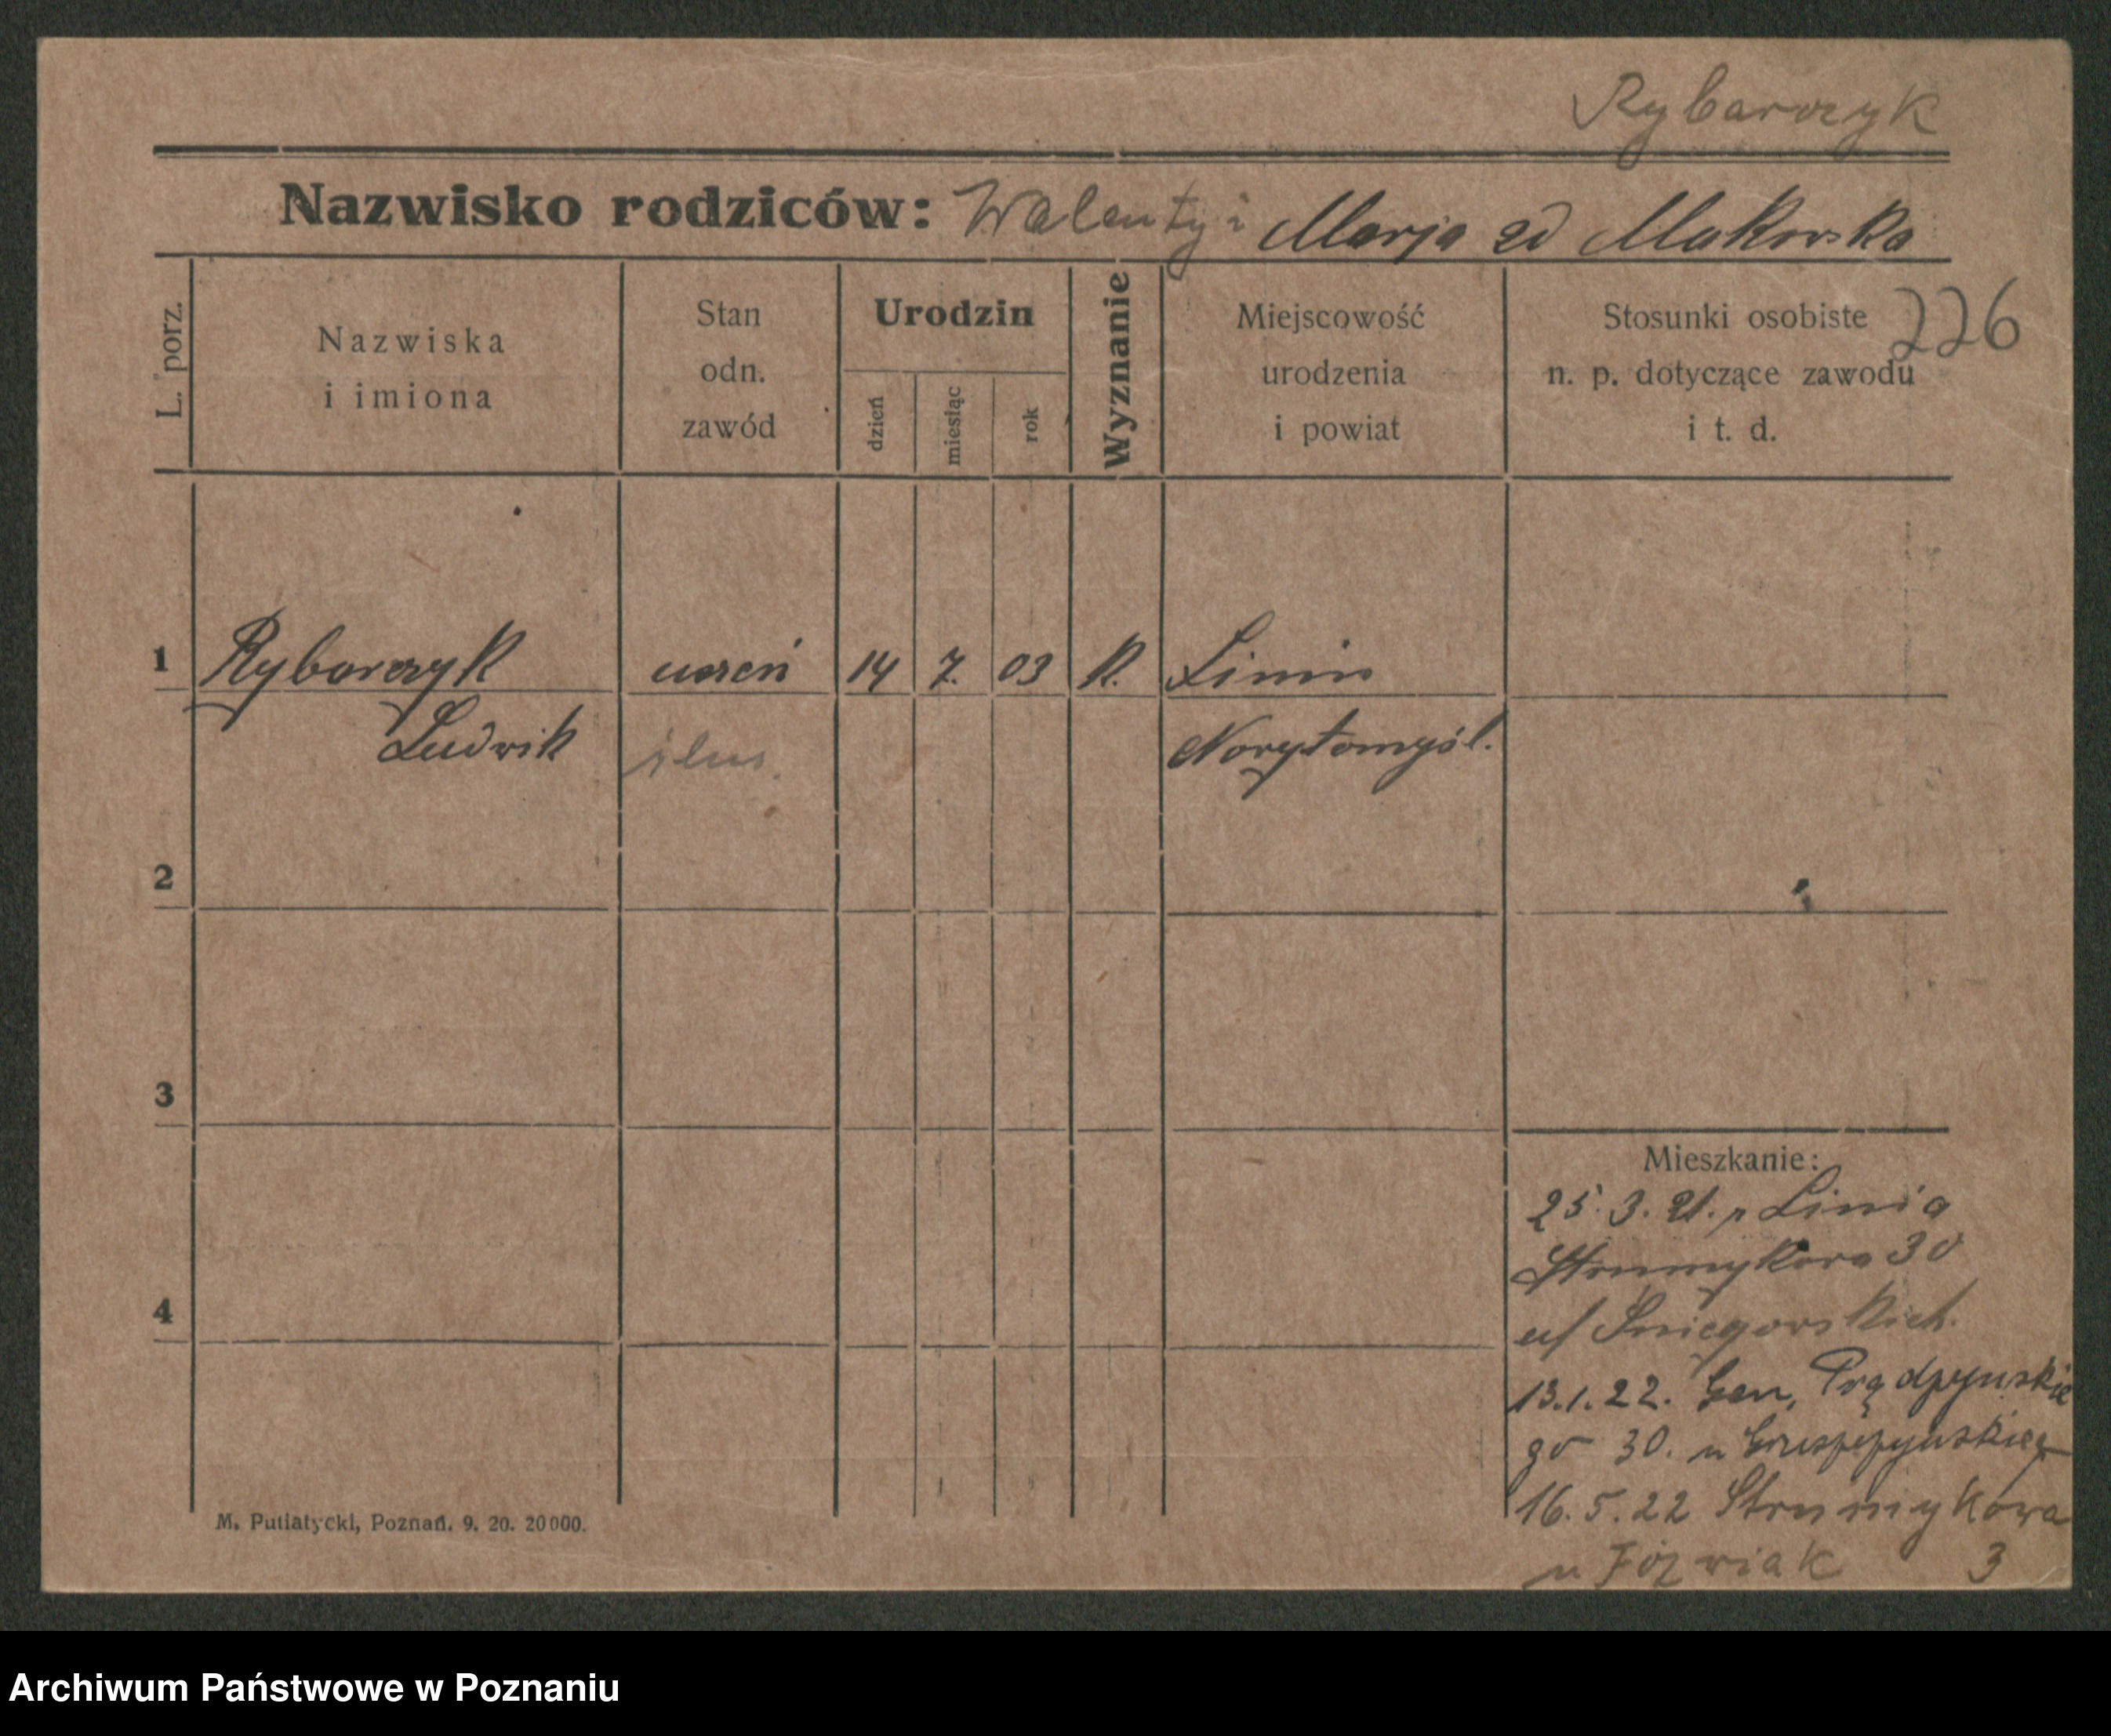 Rybarczyk
Nazwisko rodziców: Walenty i Marja zd Makowska
226
L. porz.
Nazwiska
i imiona
Stan
odn.
zawód
Urodzin
dzień
miesiąc
rok
Wyznanie
Miejscowość
urodzenia
i powiat
Stosunki osobiste
n. p. dotyczące zawodu
i t. d.
1 Rybarczyk uczeń 14 7. 03 R. Linin
Ludwik ślus. Nowytomyśl.
2
3
4
Mieszkanie:
25. 3. 21. z Linia
Strumykowa 30
u/ Śniegorskich.
13.1.22. Gen. Prądzyńskie
go 30. u
16. 5. 22 Strumykowa
u Jóźwiak 3
M. Putiatycki, Poznań. 9. 20. 20000.
Archiwum Państwowe w Poznaniu